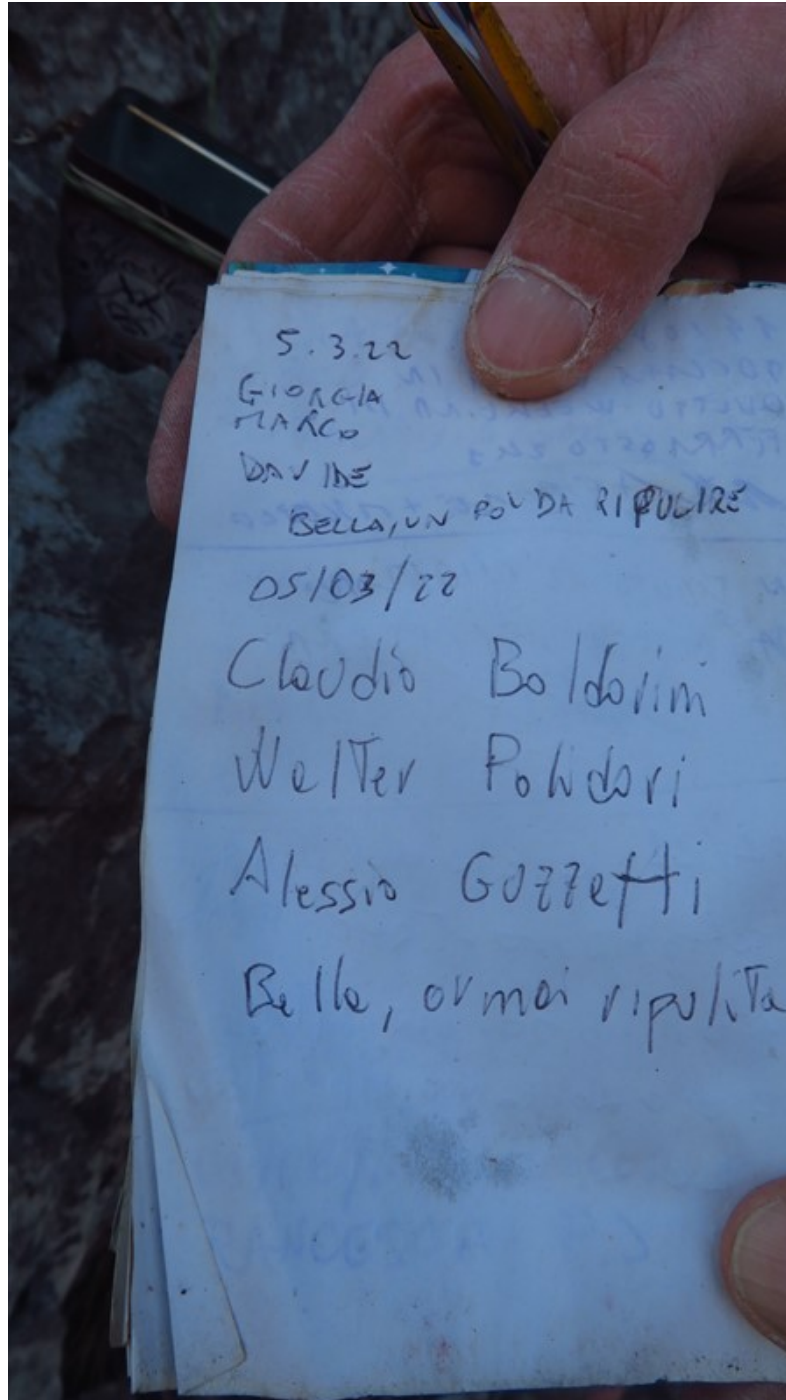 5.3.22
GIORGIA
MARCO
DAVIDE
BELLA, UN PO' DA RIPULIRE
05/03/22
Claudio Boldorini
Walter Polidori
Alessio Guzzetti
Bella, ormai ripulita